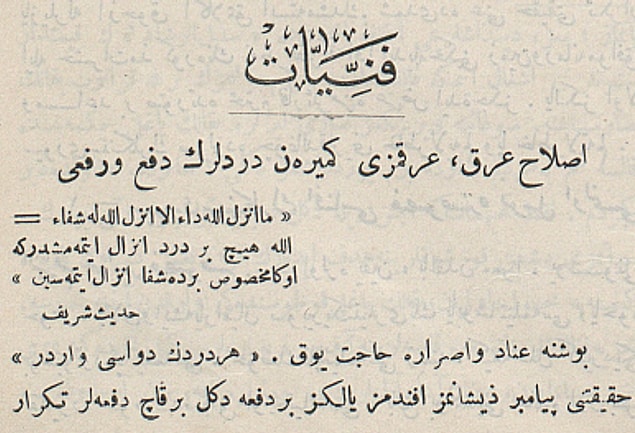 فنيّات
اصلاح عرق، عرقمزى كميرەن دردلرك دفع ورفعى
« ماانزل الله داء الا انزل الله له شفاء =
الله هيچ بر درد انزال ايتمه مشدركه
اوكا مخصوص برده شفا انزال ايتمه سين »
حديث شريف
بوشنه عناد واصراره حاجت يوق . « هر دردك دواسى واردر »
حقيقتنى پيامبر ذيشانمز افندمز يالكز بردفعه دكل برقاچ دفعه لر تكرار